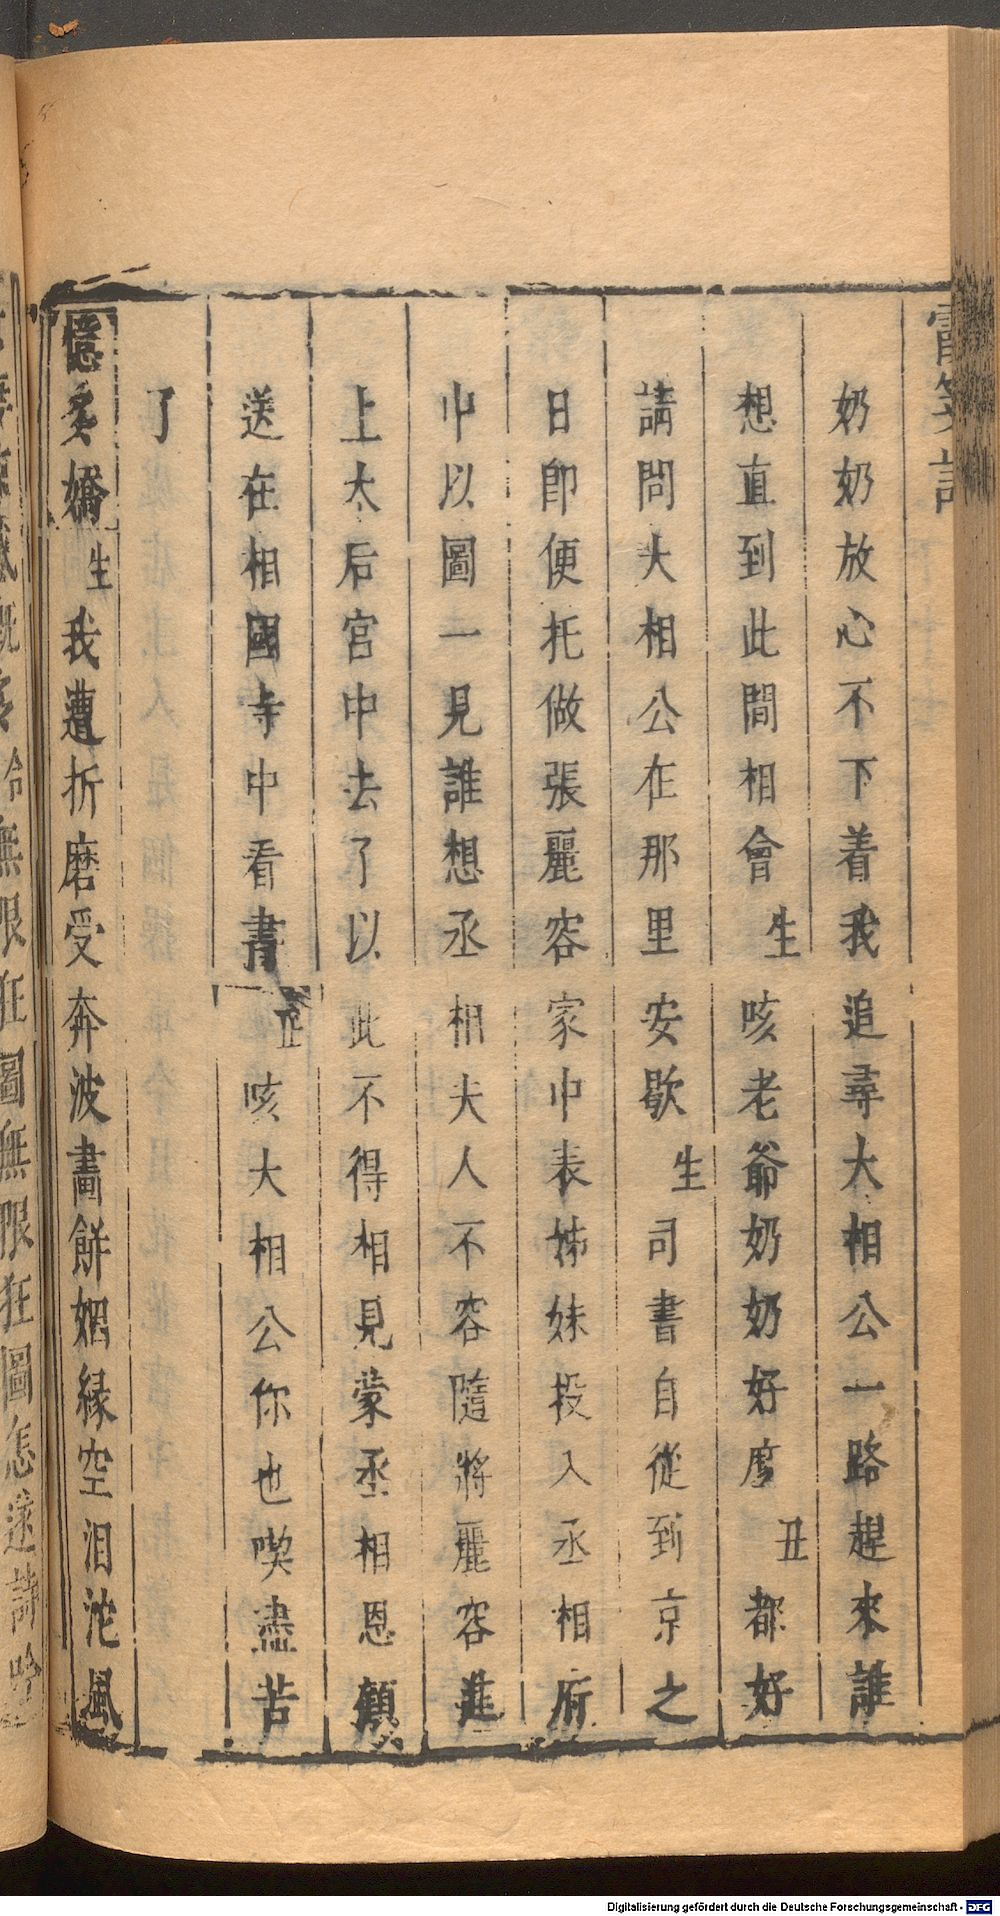 奶奶放心不下着我追尋大相公一路趕來誰
想直到此間相會生咳老爺奶奶好麼丑都好
請問大相公在那里安歇生司書自從到京之
日即便托做張麗容家中表姊妹投入丞相府
中以圖一見誰想丞相夫人不容隨將麗容進
上太后宮中去了以此不得相見蒙丞相恩顧
送在相國寺中看書丑咳大相公你也喫盡苦
了
憶多嬌生我遭折磨受奔波畫餅姻緣空泪沱風
Digitalisierung gefördert durch die Deutsche Forschungsgemeinschaft - DFG